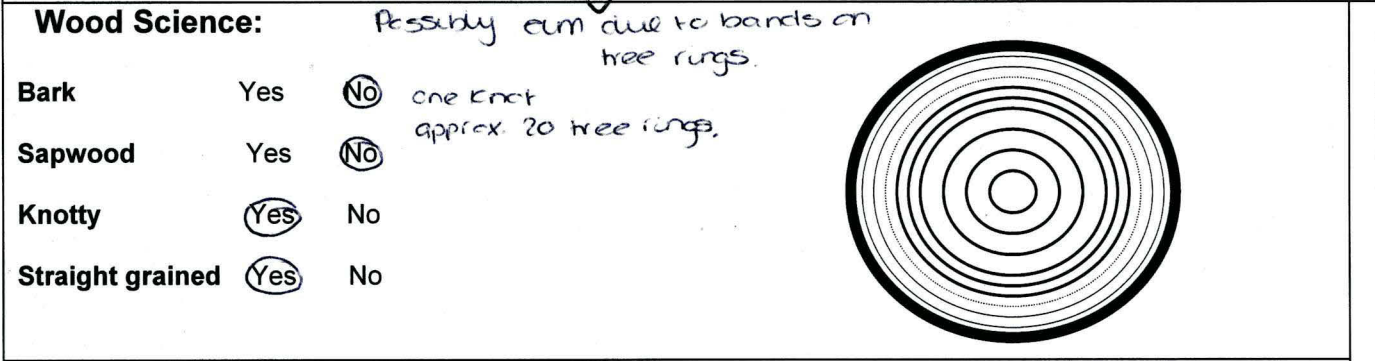 Wood Science: Possibly elm due to bands on
tree rings.
Bark Yes No one knot
approx. 20 tree rings.
Sapwood Yes No
Knotty Yes No
Straight grained Yes No